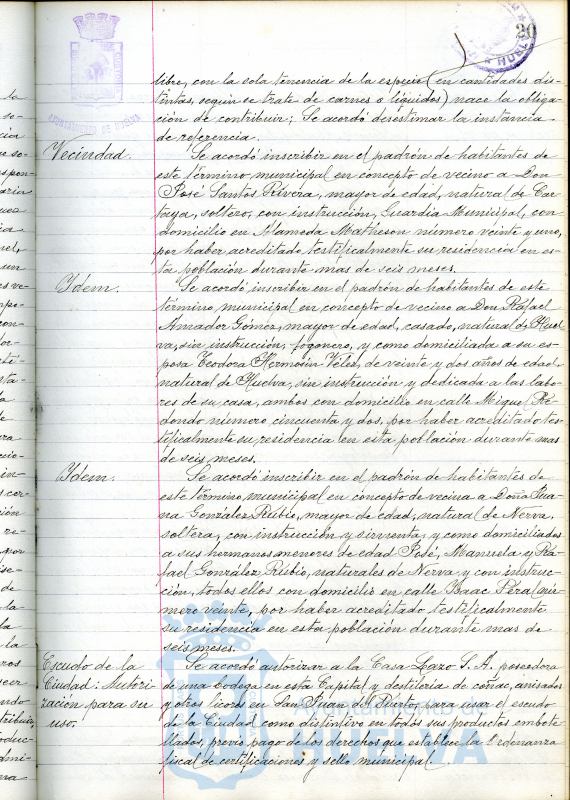 20
AYUNTAMIENTO DE HUELVA
libre, con la sola tenencia de la especie (en cantidades dis-
tintas, según se trate de carnes o liquidos) nace la obliga-
ción de contribuir; Se acordó desestimar la instancia
de referencia.
Vecindad.
Se acordó inscribir en el padrón de habitantes de
este término municipal en concepto de vecino a Don
José Santos Rivera, mayor de edad, natural de Car-
taya, soltero, con instrucción, Guardia Municipal, con
domicilio en Alameda Matheson número veinte y uno,
por haber acreditado testificalmente su residencia en es-
ta población durante mas de seis meses.
Ydem.
Se acordó inscribir en el padrón de habitantes de este
término municipal en concepto de vecino a Don Rafael
Amador Gómez, mayor de edad, casado, natural de Huel-
va, sin instrucción, fogonero, y como domiciliada a su es-
posa Teodora Hermosin Veles, de veinte y dos años de edad,
natural de Huelva, sin instrucción y dedicada a las labo-
res de su casa, ambos con domicilio en calle Miguel Re-
dondo número cincuenta y dos, por haber acreditado tes-
tificalmente su residencia en esta población durante mas
de seis meses.
Ydem.
Se acordó inscribir en el padrón de habitantes de
este término municipal en concepto de vecina a Doña Jua-
na González Rubio, mayor de edad, natural de Nerva,
soltera, con instrucción y sirvienta, y como domiciliados
a sus hermanos menores de edad José, Manuela y Ra-
fael González Rubio, naturales de Nerva y con instruc-
ción, todos ellos con domicilio en calle Isaac Peral nú-
mero veinte, por haber acreditado testificalmente
su residencia en esta población durante mas de
seis meses.
Escudo de la
Ciudad: Autori-
zación para su
uso.
Se acordó autorizar a la Casa Lazo S. A. poseedora
de una bodega en esta Capital y destileria de coñac, anisados
y otros licores en San Juan del Puerto, para usar el escudo
de la Ciudad como distintivo en todos sus productos embote-
llados, previo pago de los derechos que establece la Ordenanza
fiscal de certificaciones y sello municipal.
HUELVA